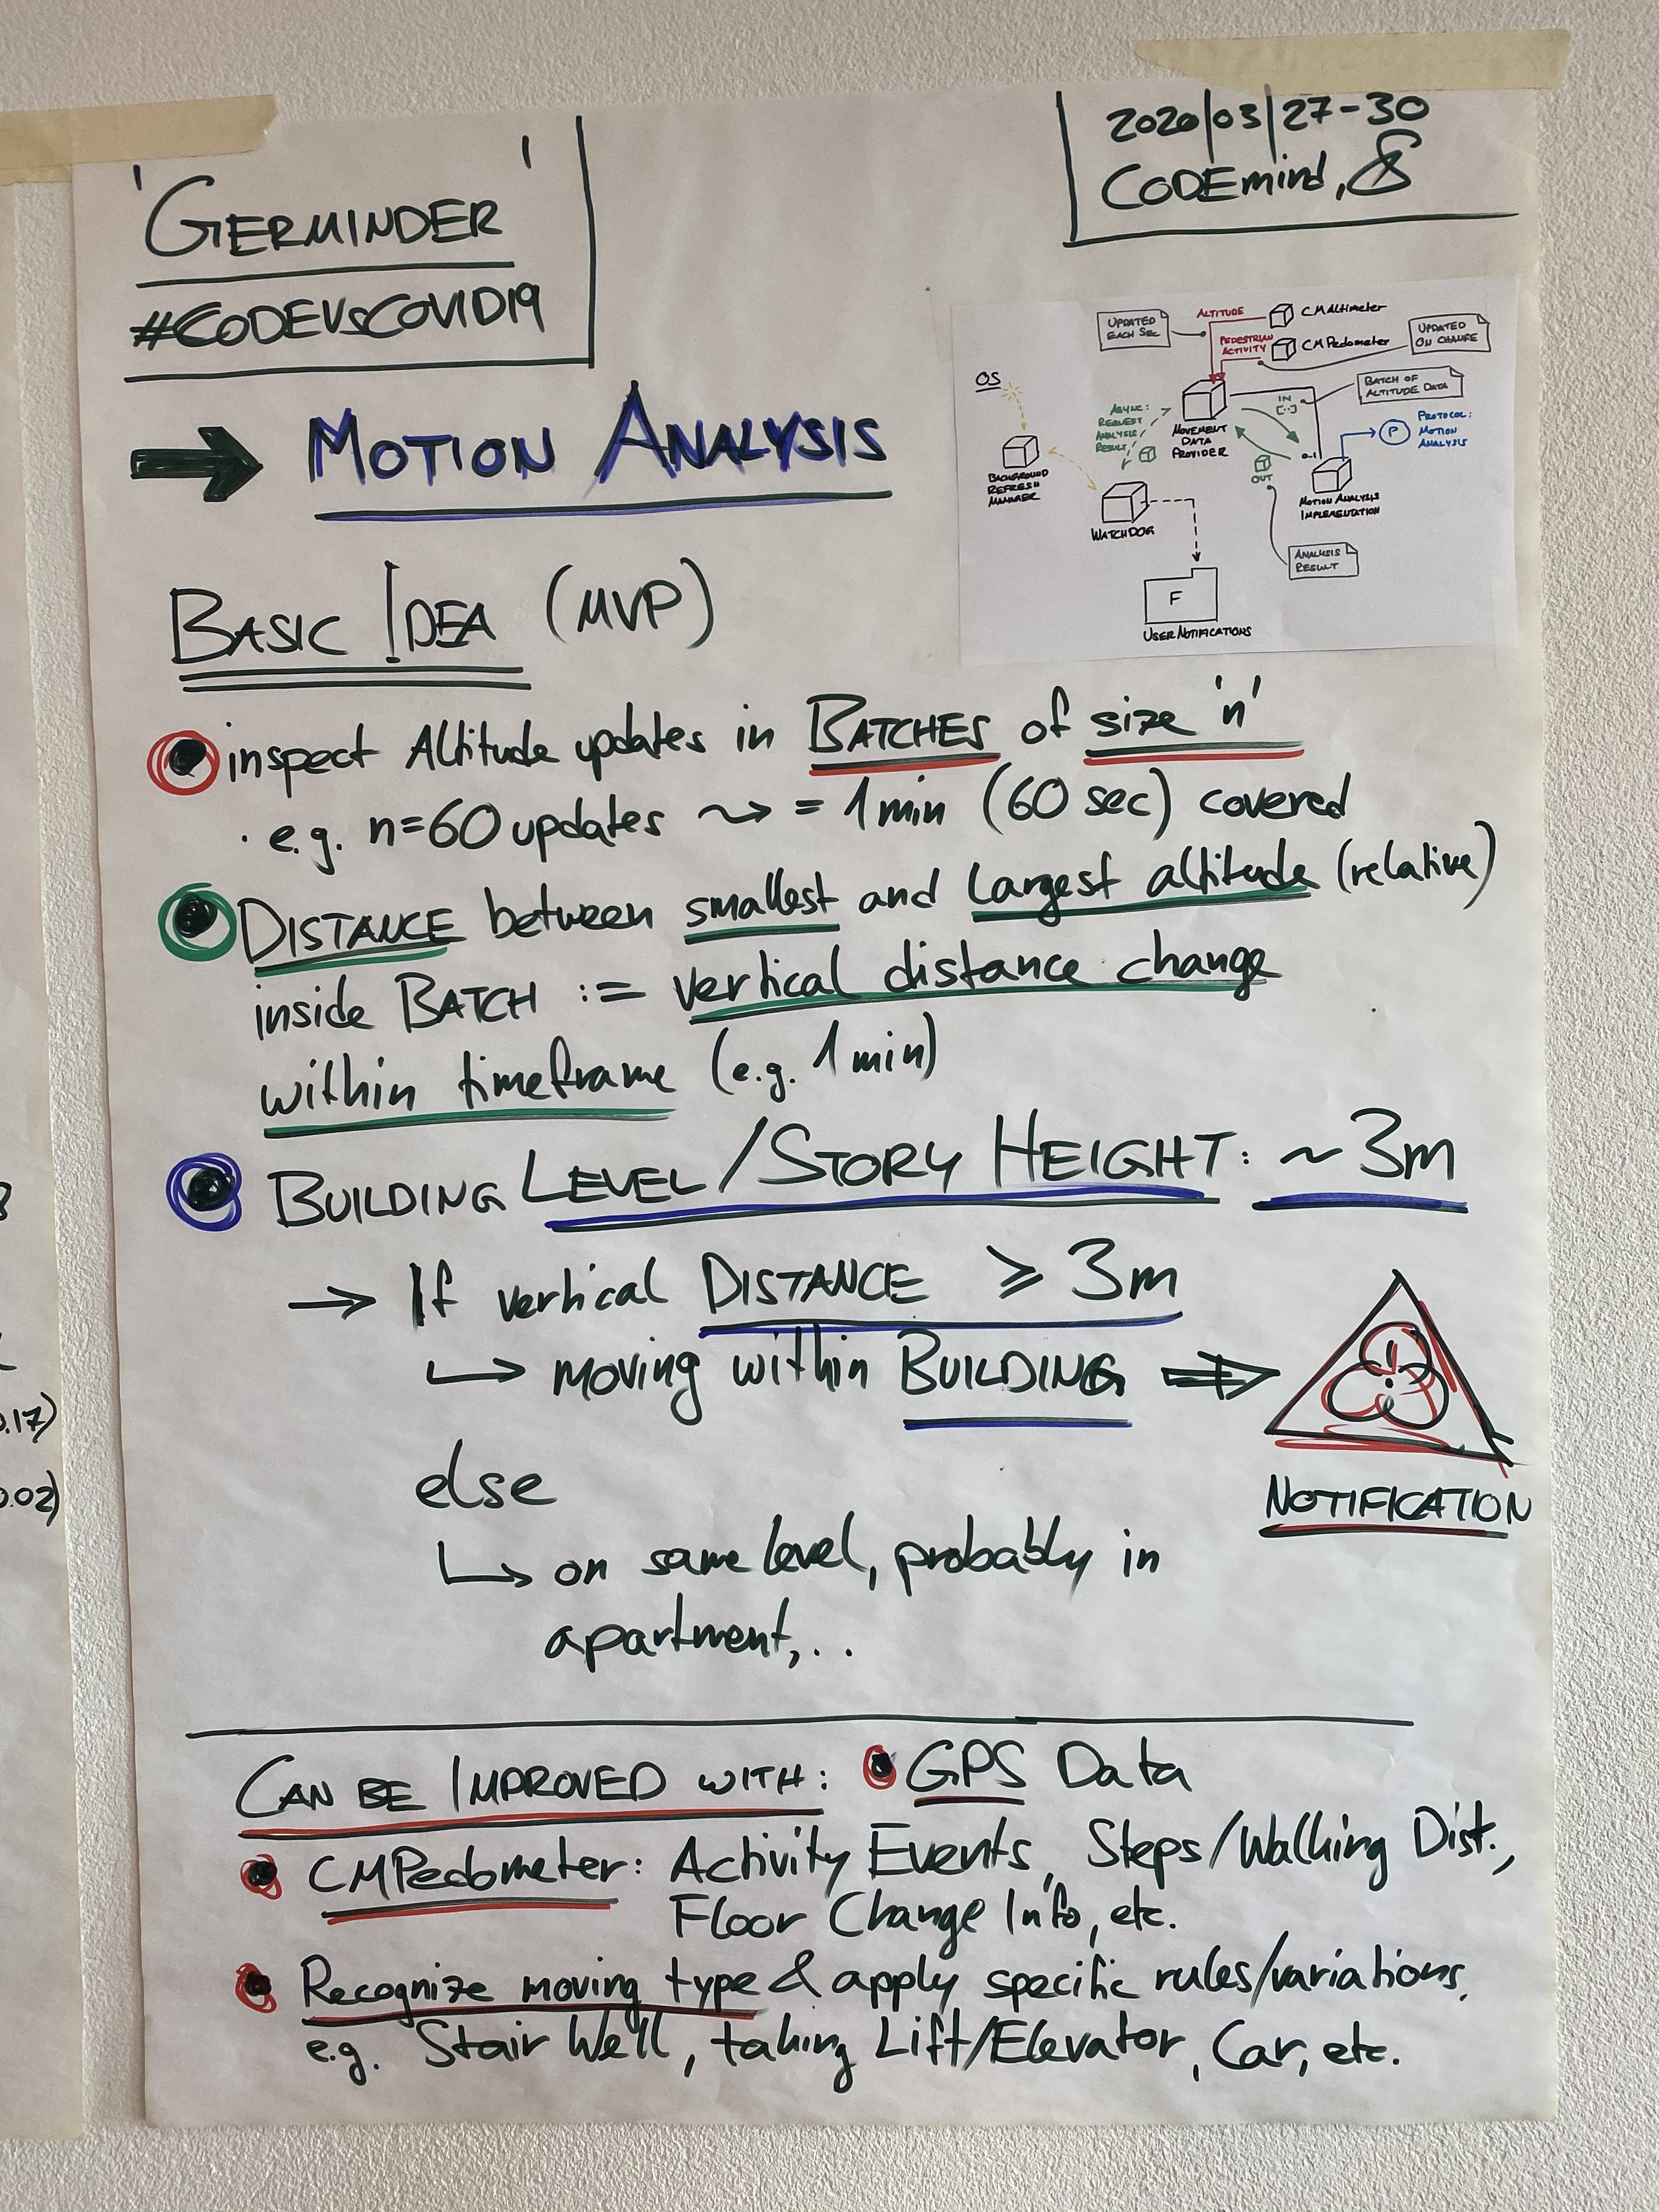 'GERMINDER'
#CODEVSCOVID19
2020/03/27-30
CODEmind,
→ MOTION ANALYSIS
UPDATED
EACH SEC
ALTITUDE
CMAltimeter
PEDESTRIAN
ACTIVITY
CMPedometer
UPDATED
ON CHANGE
OS
BATCH OF
ALTITUDE DATA
IN
[..]
ASYNC:
REQUEST
ANALYSIS
RESULT
MOVEMENT
DATA
PROVIDER
P
PROTOCOL:
MOTION
ANALYSIS
0..1
OUT
BACKGROUND
REFRESH
MANAGER
MOTION ANALYSIS
IMPLEMENTATION
WATCHDOG
ANALYSIS
RESULT
F
USER NOTIFICATIONS
BASIC IDEA (MVP)
inspect Altitude updates in BATCHES of size 'n'
· e.g. n=60 updates ~> = 1 min (60 sec) covered
DISTANCE between smallest and largest altitude (relative)
inside BATCH := vertical distance change
within timeframe (e.g. 1 min)
BUILDING LEVEL/STORY HEIGHT: ~3m
→ If vertical DISTANCE ≥ 3m
↳ moving within BUILDING ⇒
!
NOTIFICATION
else
↳ on same level, probably in
apartment,..
CAN BE IMPROVED WITH: • GPS Data
• CMPedometer: Activity Events, Steps/Walking Dist.,
Floor Change Info, etc.
• Recognize moving type & apply specific rules/variations,
e.g. Stair Well, taking Lift/Elevator, Car, etc.
0.17)
0.02)